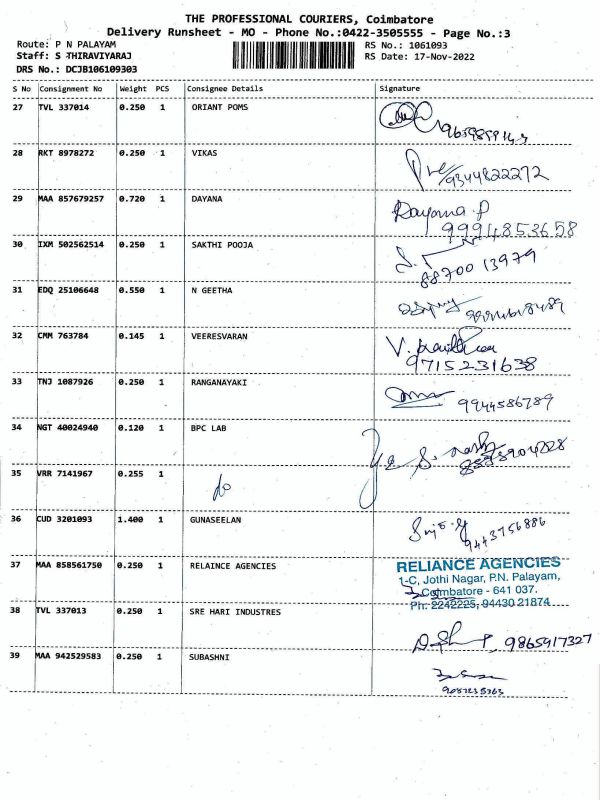 THE PROFESSIONAL COURIERS, Coimbatore
Delivery Runsheet - MO - Phone No.:0422-3505555 - Page No.:3
Route: P N PALAYAM RS No.: 1061093
Staff: S THIRAVIYARAJ RS Date: 17-Nov-2022
DRS No.: DCJB106109303
S No Consignment No Weight PCS Consignee Details Signature
27 TVL 337014 0.250 1 ORIANT POMS
28 RKT 8978272 0.250 1 VIKAS
9344822272
29 MAA 857679257 0.720 1 DAYANA
Dayana P
9994853658
30 IXM 502562514 0.250 1 SAKTHI POOJA
8870013979
31 EDQ 25106648 0.550 1 N GEETHA
32 CMM 763784 0.145 1 VEERESVARAN
9715231638
33 TNJ 1087926 0.250 1 RANGANAYAKI
9944586789
34 NGT 40024940 0.120 1 BPC LAB
35 VRR 7141967 0.255 1
do
36 CUD 3201093 1.400 1 GUNASEELAN
9443756886
37 MAA 858561750 0.250 1 RELAINCE AGENCIES
RELIANCE AGENCIES
1-C, Jothi Nagar, P.N. Palayam,
Coimbatore - 641 037.
Ph: 2242225, 94430 21874
38 TVL 337013 0.250 1 SRE HARI INDUSTRES
9865917327
39 MAA 942529583 0.250 1 SUBASHNI